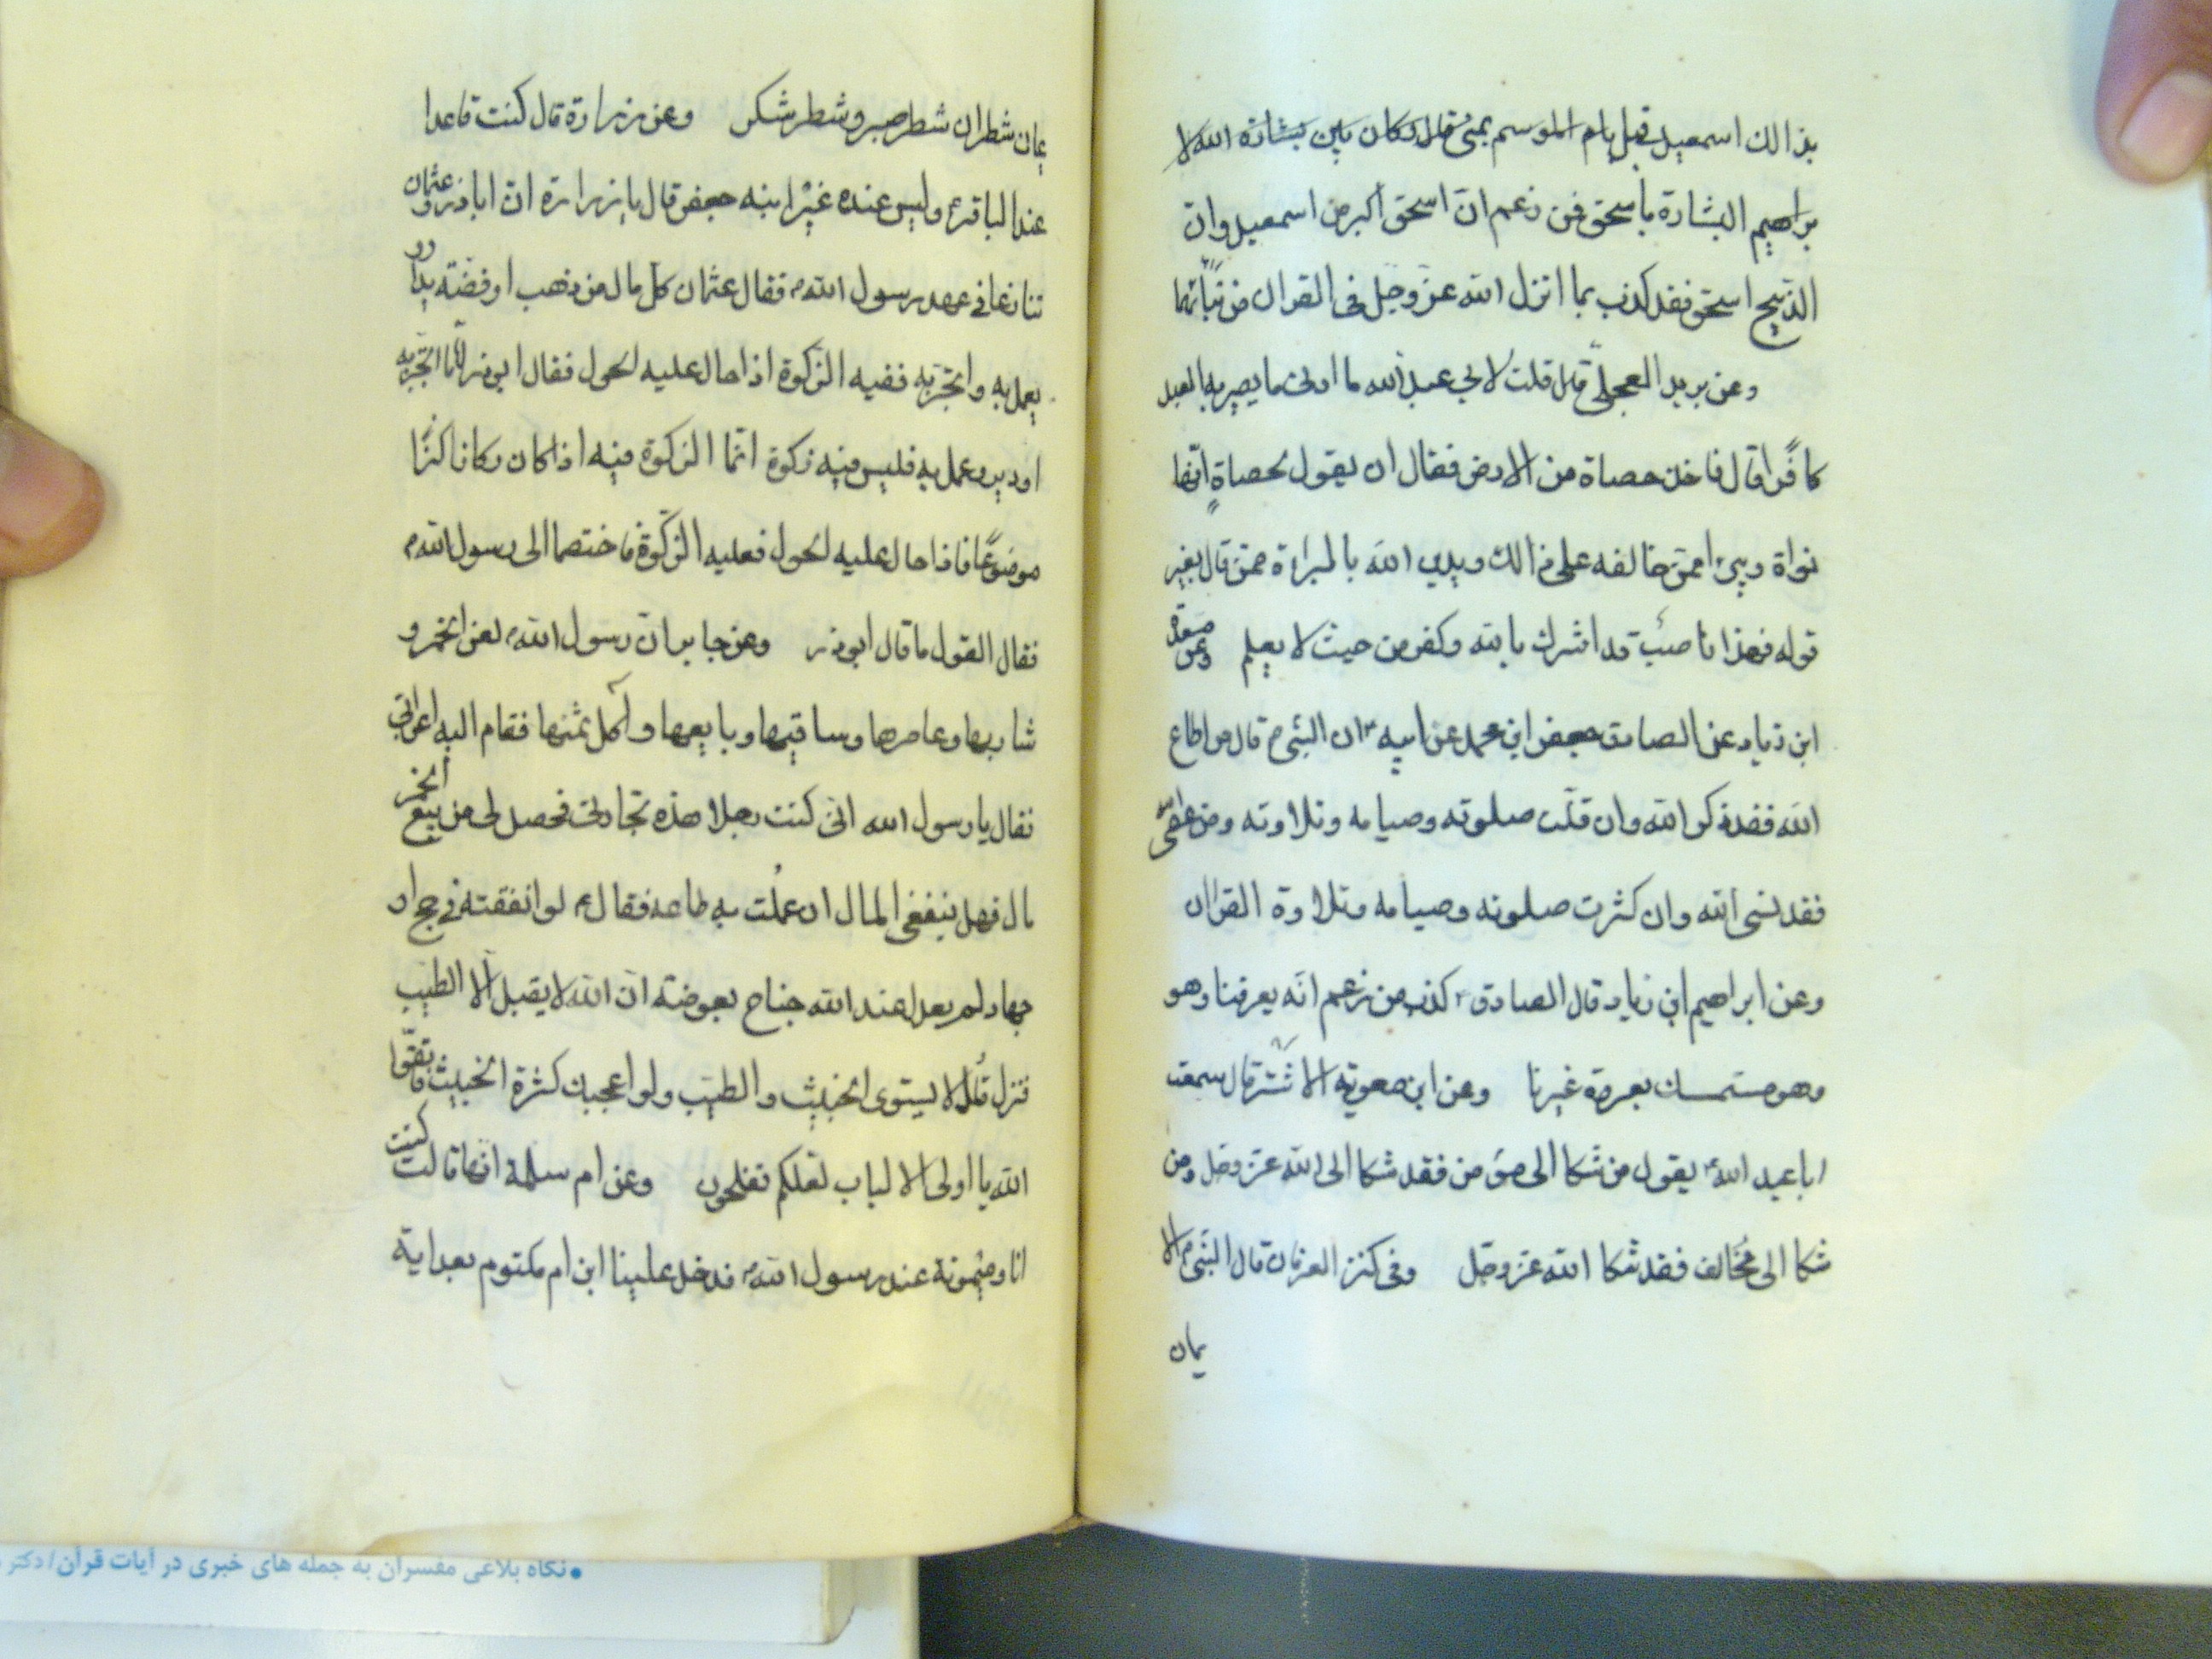 بذالك اسمعيل قبل بام الموسم بمنى قال وكان بين بشارة الله لا
براهيم البشارة باسحق فمن زعم ان اسحق اكبر من اسمعيل وان
الذبيح اسحق فقد كذب بما انزل الله عز وجل فى القران من نبأئهما
وعن بريد العجلى قال قلت لابي عبد الله ما ادنى ما يصير به العبد
كافرا قال فاخذ حصاة من الارض فقال ان يقول لحصاة انها
نواة ويبرئ ممن خالفه على ذالك ويدين الله بالبراءة ممن قال بغير
قوله فهذا ناصب قد اشرك بالله وكفر من حيث لا يعلم وعن
ابن زياد عن الصادق جعفر ابن محمد عن ابيه ان النبى قال من اطاع
الله فقد ذكر الله وان قلت صلوته وصيامه وتلاوته ومن عصى الله
فقد نسى الله وان كثرت صلوته وصيامه وتلاوة القران
وعن ابراهيم ابن زياد قال الصادق كذب من زعم انه يعرفنا وهو
وهو مستمسك بعروة غيرنا وعن ابن معوية الاشتر قال سمعت
ابا عبد الله يقول من شكا الى مؤمن فقد شكا الى الله عز وجل ومن
شكا الى مخالف فقد شكا الله عز وجل وفى كنز العرفان قال النبى الا
يمان
يمان شطران شطر صبر وشطر شكر وعن زرارة قال كنت قاعدا
عند الباقر وليس عنده غير ابنه جعفر قال يا زرارة ان اباذر وعثمان
تنازعا فى عهد رسول الله فقال عثمان كل مال من ذهب او فضة يدار
يعمل به واتجر به ففيه الزكوة اذا حال عليه الحول فقال ابوذر اما اتجر به
او دير وعمل به فليس فيه زكوة انما الزكوة فيه اذا كان ركازا كنزا
موضوعا فاذا حال عليه الحول فعليه الزكوة فاختصما الى رسول الله
فقال القول ما قال ابوذر وعن جابر ان رسول الله لعن الخمر و
شاربها وعاصرها وساقيها وبايعها واكل ثمنها فقام اليه اعرابى
فقال يا رسول الله انى كنت رجلا هذه تجارتى فحصل لى من بيع الخمر
مال فهل ينفعنى المال ان عملت به طاعه فقال لو انفقته فى حج او
جهاد لم يعدل عند الله جناح بعوضة ان الله لا يقبل الا الطيب
فنزل قل لا يستوى الخبيث والطيب ولو اعجبك كثرة الخبيث فاتقوا
الله يا اولى الالباب لعلكم تفلحون وعن ام سلمة انها قالت كنت
انا وميمونة عند رسول الله فدخل علينا ابن ام مكتوم بعد اية
•نگاه بلاغی مفسران به جمله های خبری در آیات قرآن/دکتر